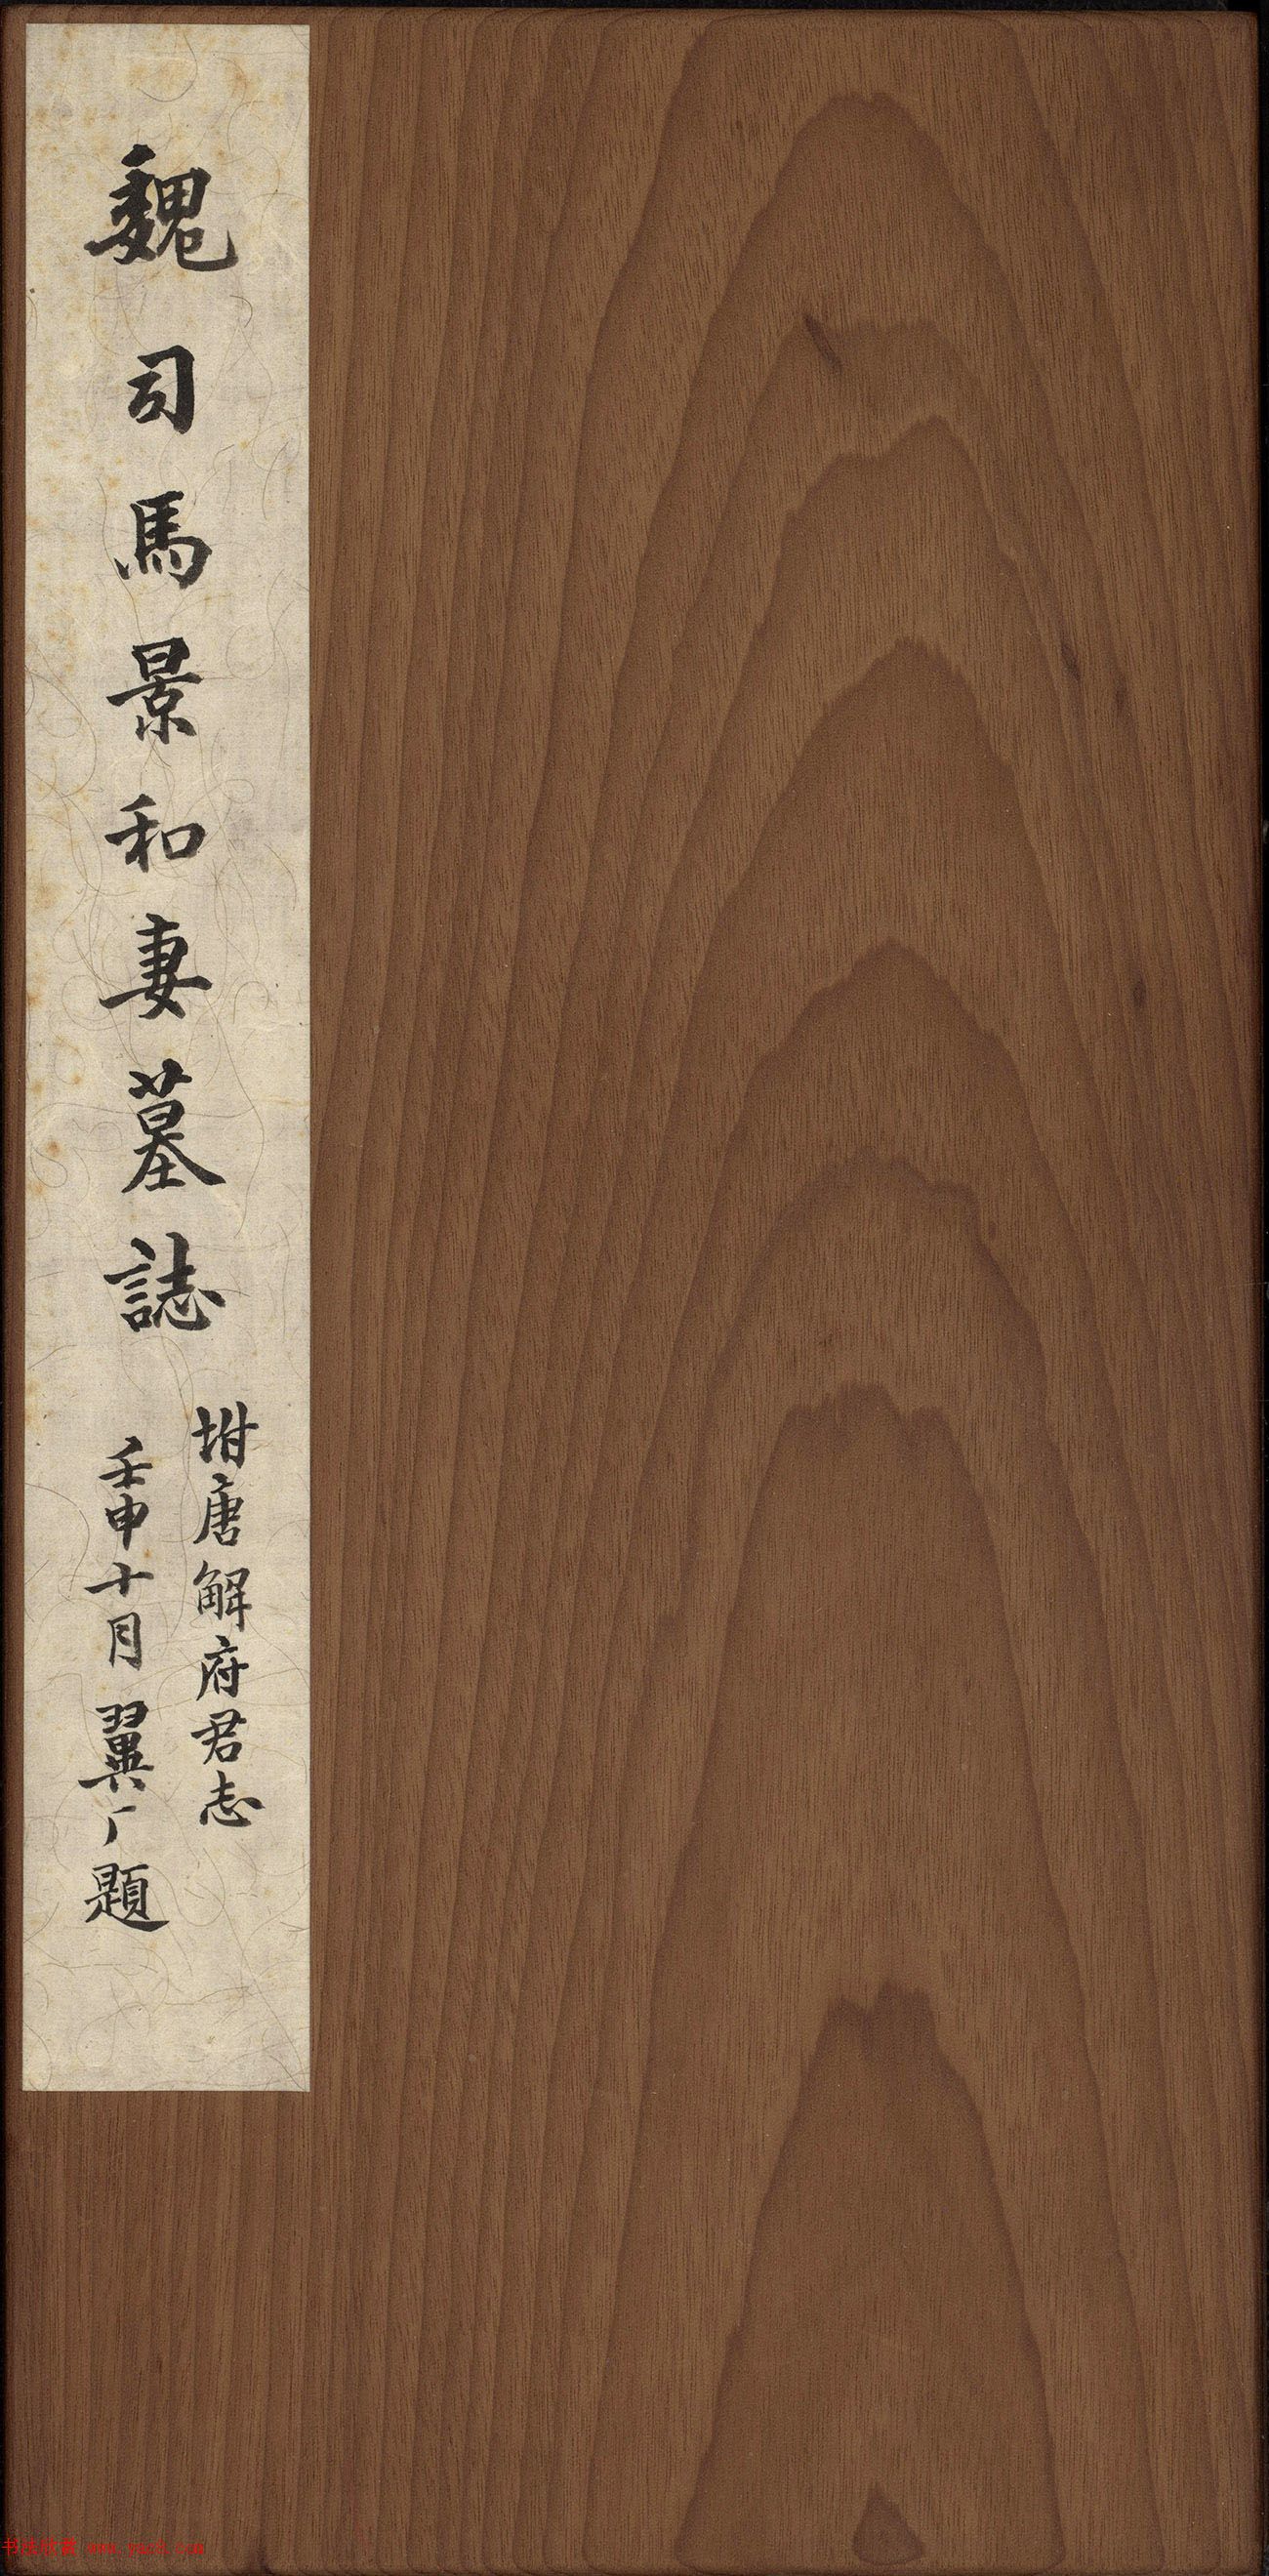 魏司馬景和妻墓誌
坿唐解府君志
壬申十月翼厂題
书法欣赏 www.yac8.com